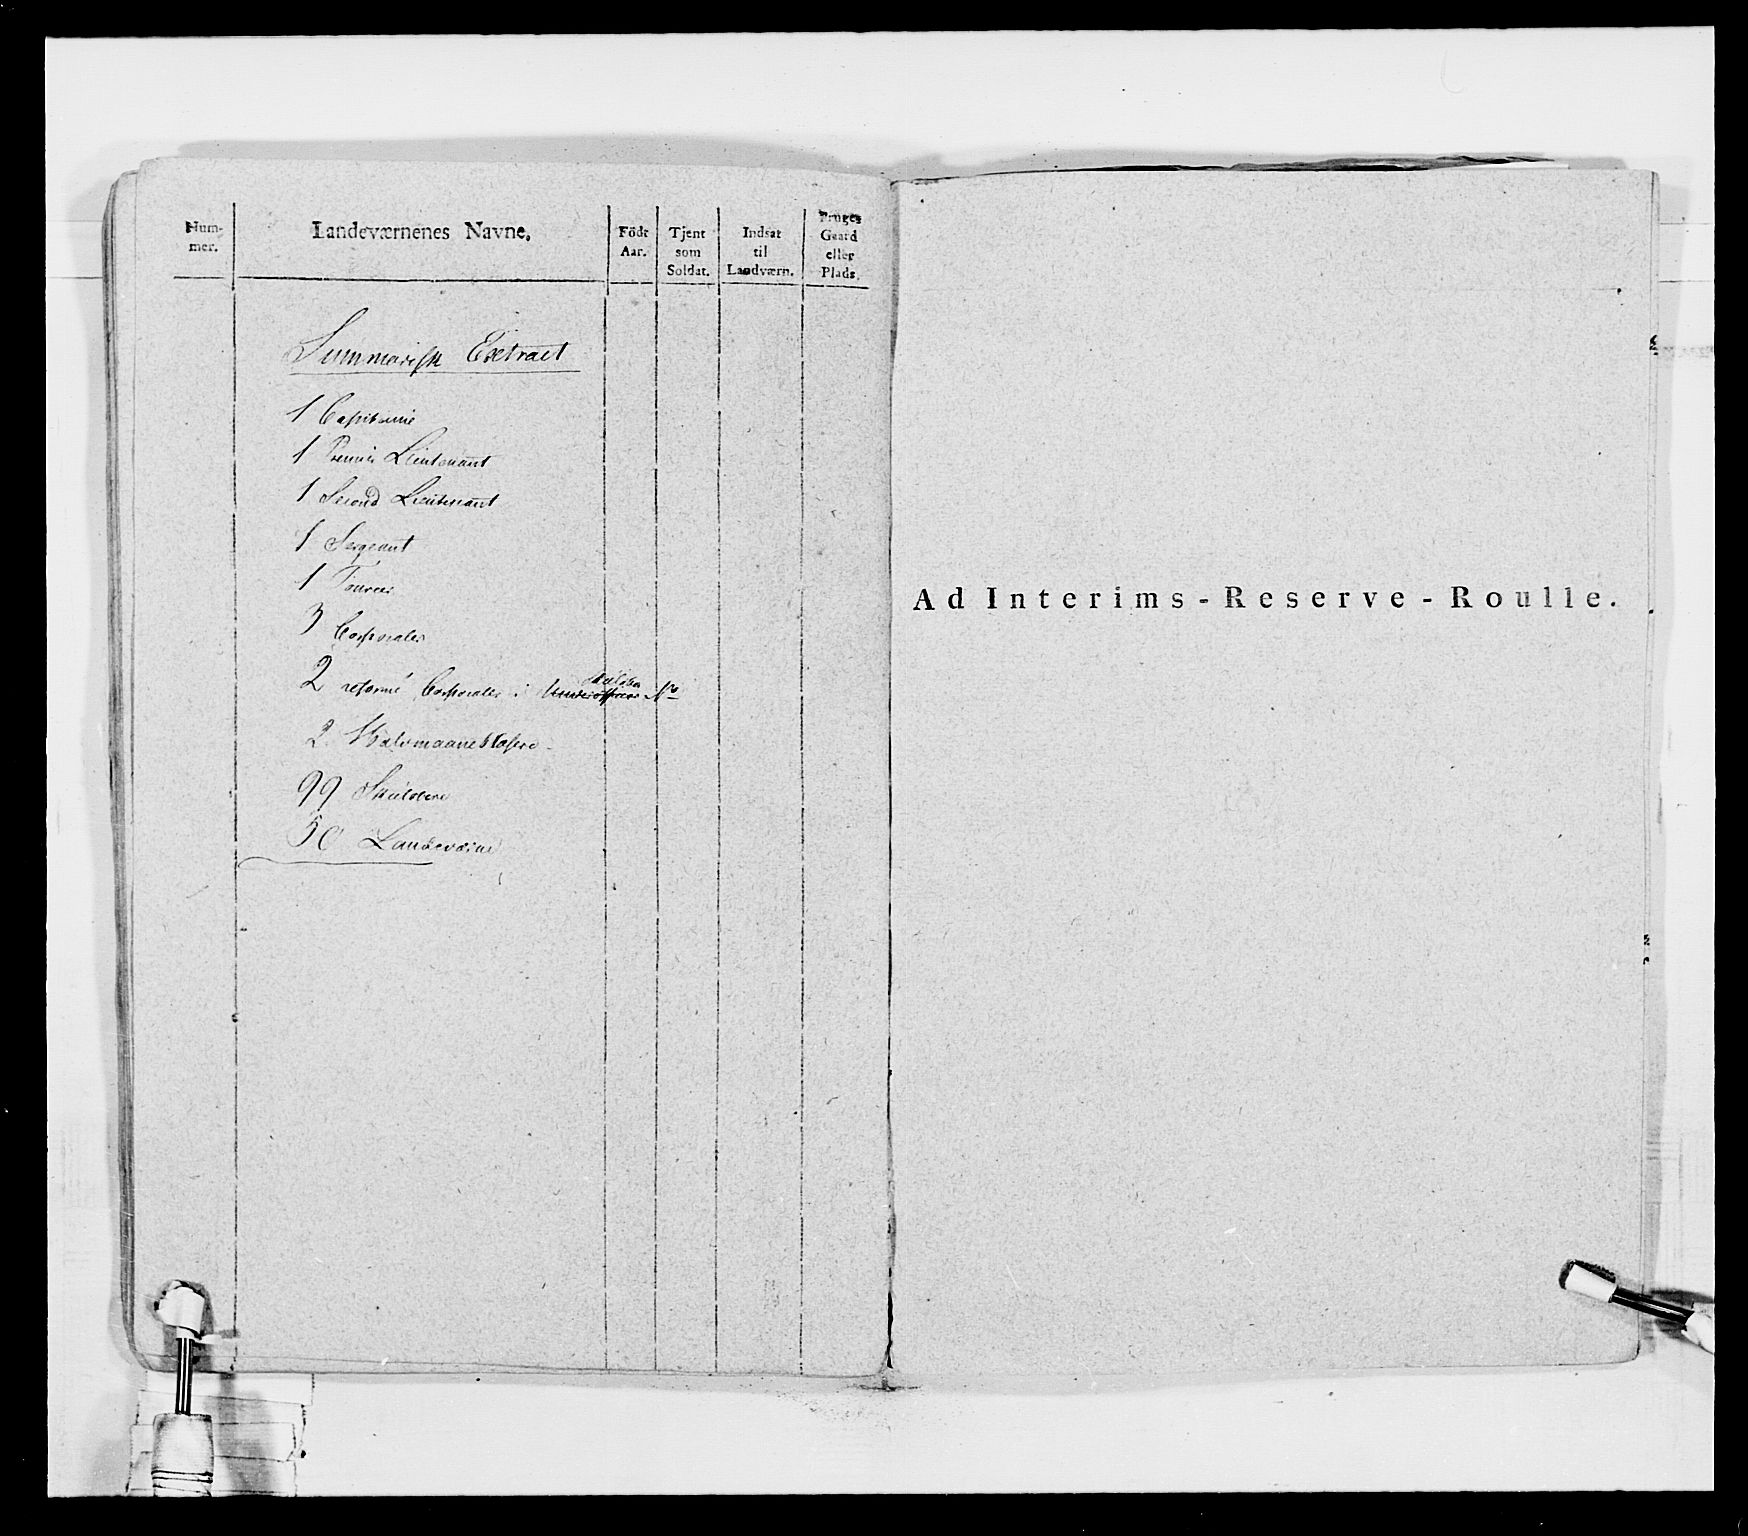 Num-
mer.
Landeværnenes Navne.
Födt
Aar.
Tjent
som
Soldat.
Indsat
til
Landværn.
Bruges
Gaard
eller
Plads.
Summarisk Extract
1 Capitaine
1 Premier Lieutenant
1 Second Lieutenant
1 Sergeant
1 Fourier
3 Corporaler
Skielöber
2 reformé Corporaler i Underofficeer No
2 Halvmaaneblæsere
99 Skielöbere
50 Landeværne
Ad Interims-Reserve-Roulle.